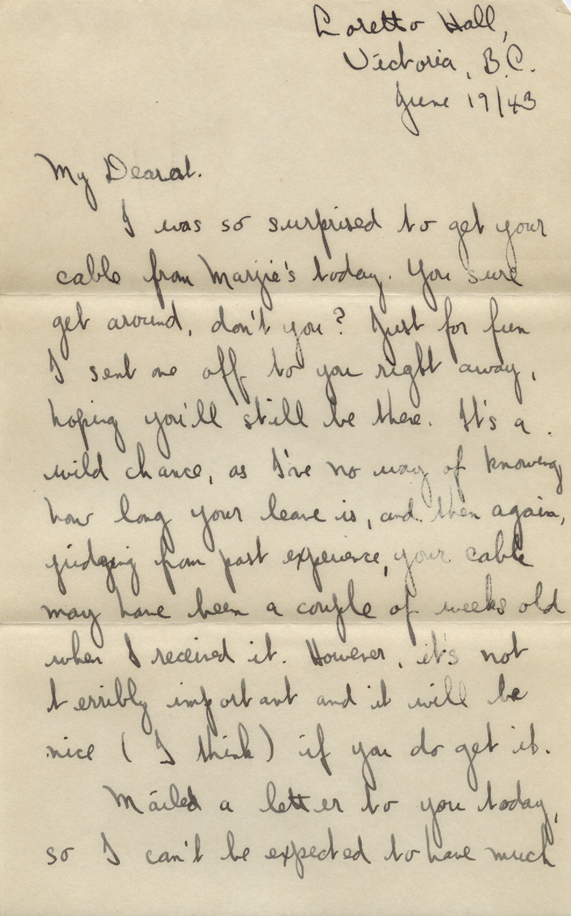 Loretto Hall,
Victoria, B.C.
June 19/43
My Dearest.
I was so surprised to get your
cable from Marjie's today. You sure
get around, don't you? Just for fun
I sent one off to you right away,
hoping you'll still be there. It's a
wild chance, as I've no way of knowing
how long your leave is, and then again,
judging from past experience, your cable
may have been a couple of weeks old
when I received it. However, it's not
terribly important and it will be
nice (I think) if you do get it.
Mailed a letter to you today,
so I can't be expected to have much